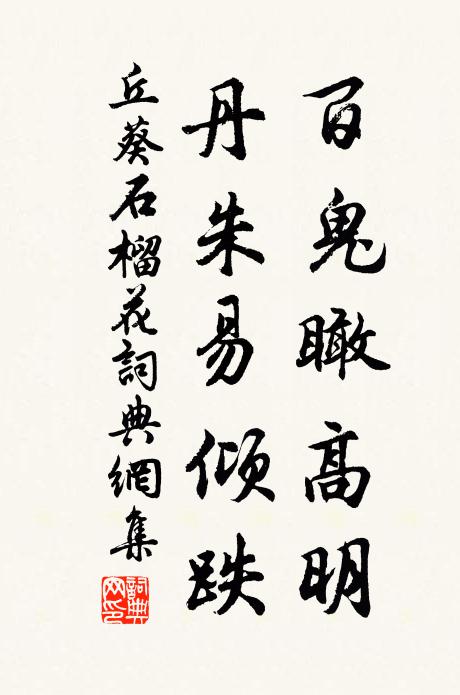 百鬼瞰高明
丹朱易倾跌
丘葵石榴花詞典網集
詞典網印